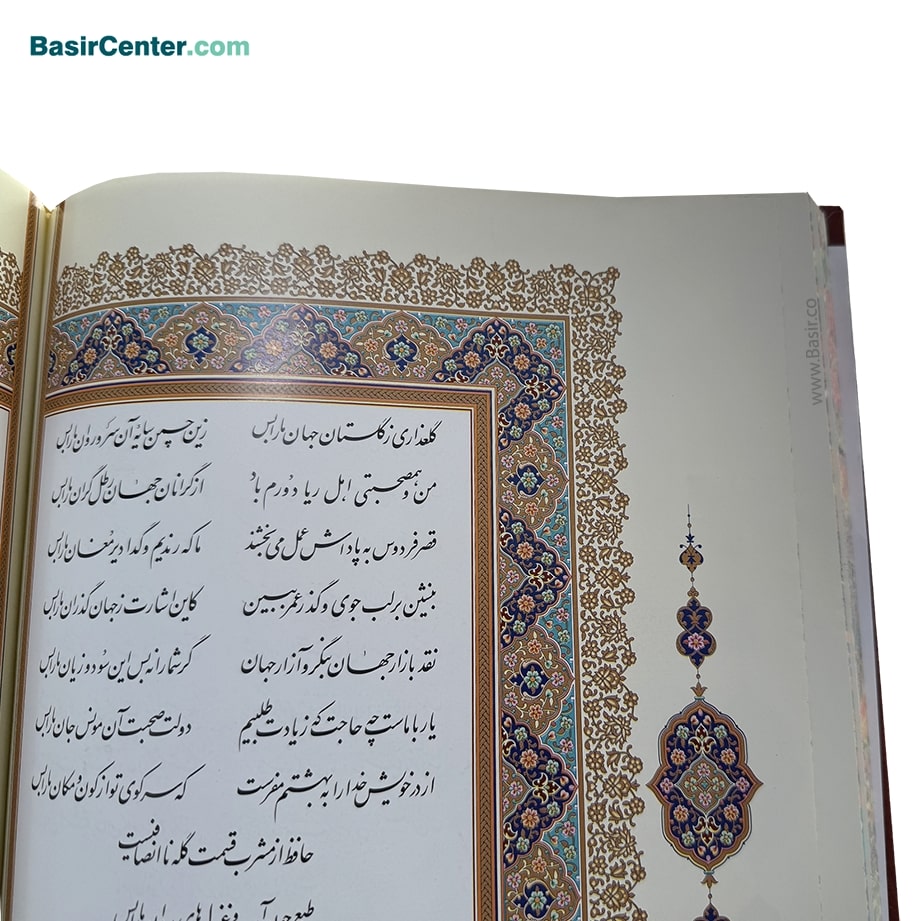 BasirCenter.com
www.Basir.co
گلعذاری ز گلستان جهان ما را بس زین چمن سایهٔ آن سرو روان ما را بس
من و همصحبتی اهل ریا دورم باد از گرانان جهان رطل گران ما را بس
قصر فردوس به پاداش عمل می بخشند ما که رندیم و گدا دیر مغان ما را بس
بنشین بر لب جوی و گذر عمر ببین کاین اشارت ز جهان گذران ما را بس
نقد بازار جهان بنگر و آزار جهان گر شما را نه بس این سود و زیان ما را بس
یار با ماست چه حاجت که زیادت طلبیم دولت صحبت آن مونس جان ما را بس
از در خویش خدا را به بهشتم مفرست که سر کوی تو از کون و مکان ما را بس
حافظ از مشرب قسمت گله ناانصافیست
طبع چون آب و غزلهای روان ما را بس